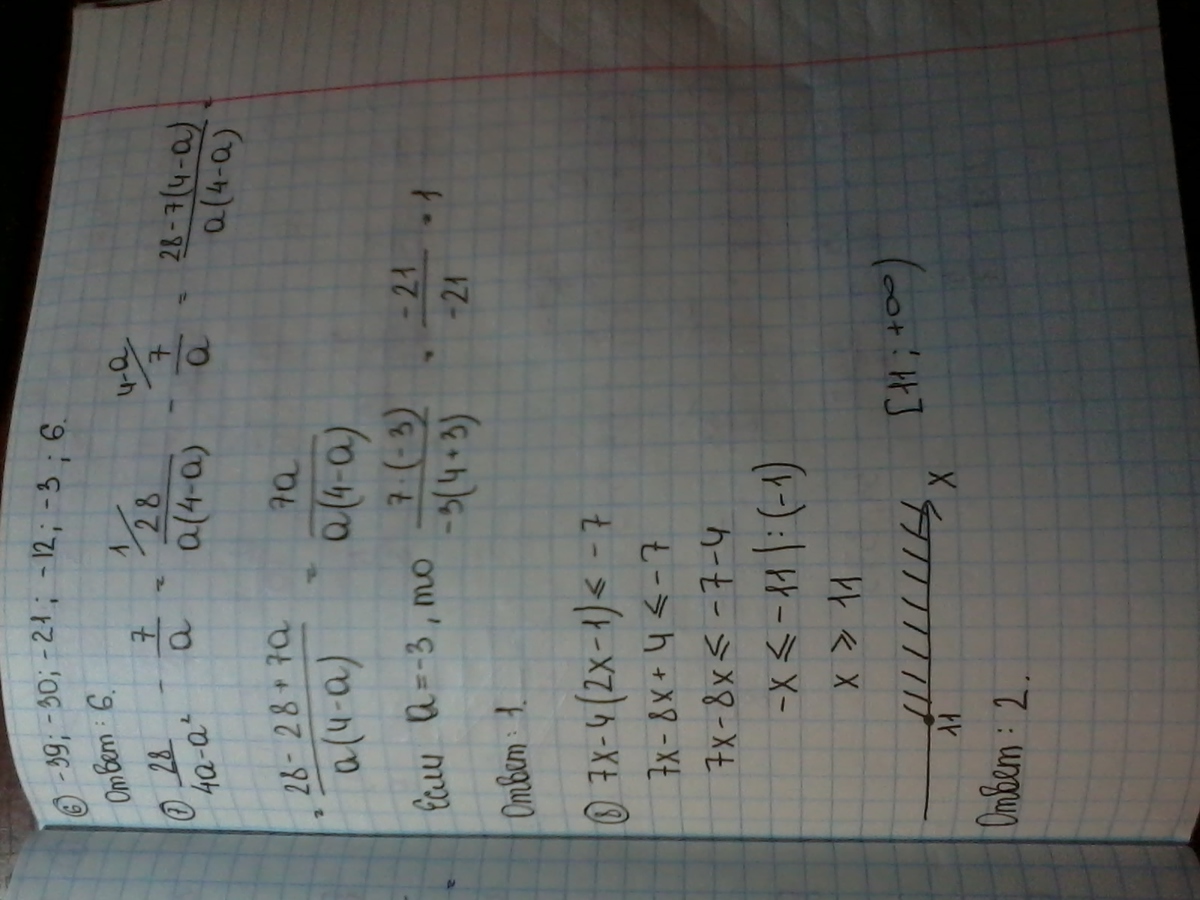 ⑥ -39; -30; -21; -12; -3; 6.
Ответ: 6.
⑦ 28/(4a-a²) - 7/a = 1/ 28/(a(4-a)) - 4-a/ 7/a = (28-7(4-a))/(a(4-a)) =
= (28-28+7a)/(a(4-a)) = 7a/(a(4-a))
Если a=-3, то (7·(-3))/(-3(4+3)) = -21/-21 = 1
Ответ: 1.
⑧ 7x-4(2x-1) ≤ -7
7x-8x+4 ≤ -7
7x-8x ≤ -7-4
-x ≤ -11 |:(-1)
x ≥ 11
11 x [11; +∞)
Ответ: 2.
=